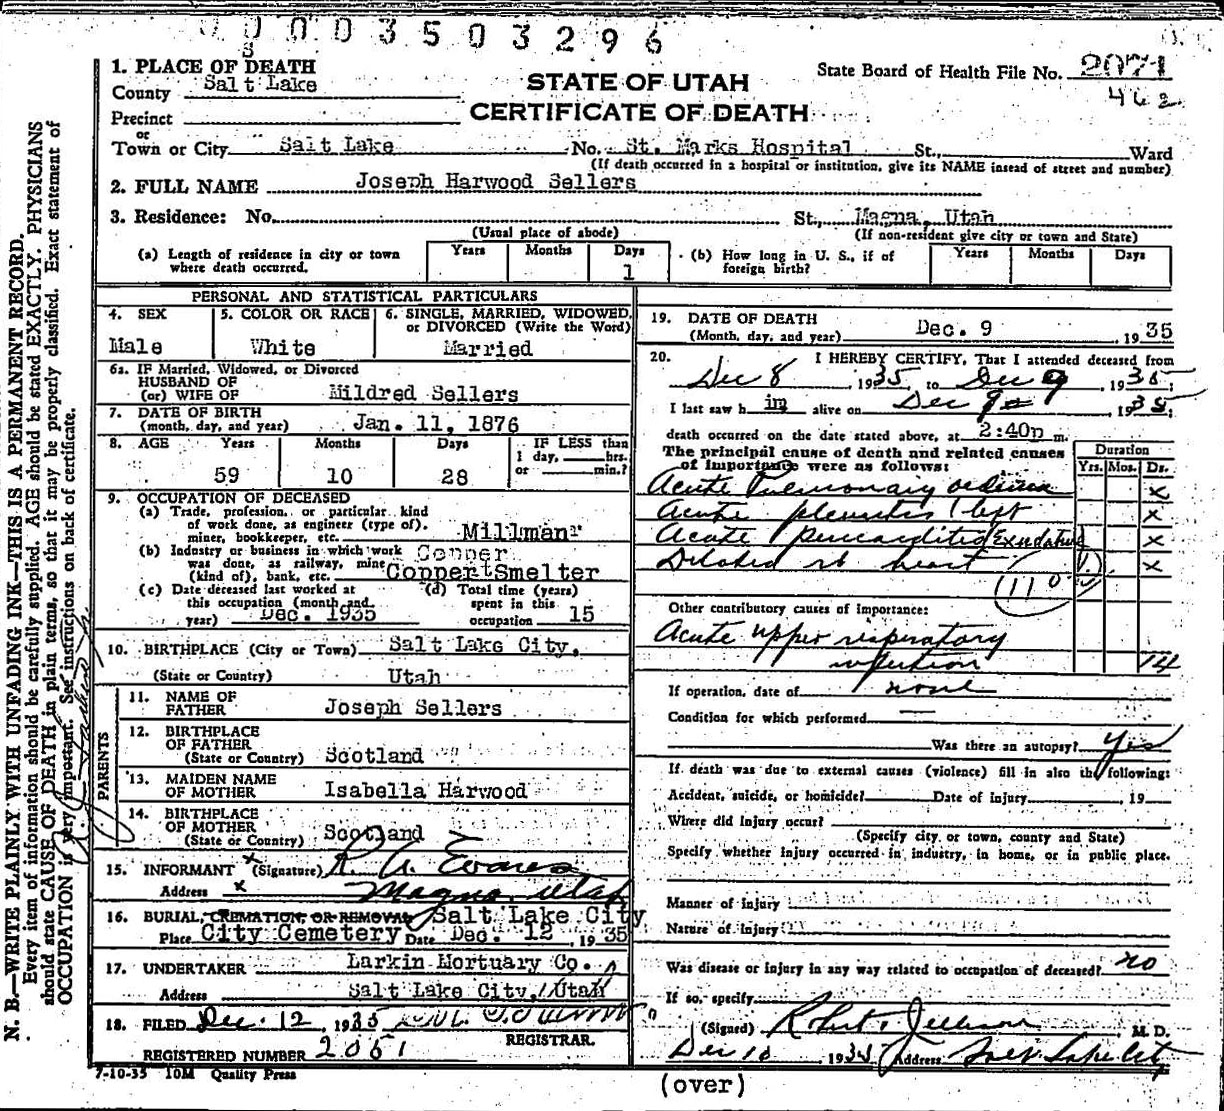 0003503296
1. PLACE OF DEATH
County Salt Lake
STATE OF UTAH
CERTIFICATE OF DEATH
State Board of Health File No. 2071
462
Precinct
or
Town or City Salt Lake No. St. Marks Hospital St., Ward
(If death occurred in a hospital or institution, give its NAME insead of street and number)
2. FULL NAME Joseph Harwood Sellers
3. Residence: No. St., Magna, Utah
(Usual place of abode) (If non-resident give city or town and State)
(a) Length of residence in city or town where death occurred. Years Months Days 1
(b) How long in U. S., if of foreign birth? Years Months Days
PERSONAL AND STATISTICAL PARTICULARS
4. SEX Male
5. COLOR OR RACE White
6. SINGLE, MARRIED, WIDOWED, or DIVORCED (Write the Word) Married
6a. IF Married, Widowed, or Divorced
HUSBAND OF
(or) WIFE OF Mildred Sellers
7. DATE OF BIRTH
(month, day, and year) Jan. 11, 1876
8. AGE Years Months Days IF LESS than
1 day, hrs.
or min.?
59 10 28
9. OCCUPATION OF DECEASED
(a) Trade, profession, or particular kind
of work done, as engineer (type of),
miner, bookkeeper, etc. Millman
(b) Industry or business in which work Copper
was done, as railway, mine
(kind of), bank, etc. Copper Smelter
(c) Date deceased last worked at
this occupation (month and
year) Dec. 1935
(d) Total time (years)
spent in this
occupation 15
10. BIRTHPLACE (City or Town) Salt Lake City,
(State or Country) Utah
PARENTS
11. NAME OF
FATHER Joseph Sellers
12. BIRTHPLACE
OF FATHER
(State or Country) Scotland
13. MAIDEN NAME
OF MOTHER Isabella Harwood
14. BIRTHPLACE
OF MOTHER
(State or Country) Scotland
15. INFORMANT x (Signature) R. A. Evans
Address x Magna, Utah
16. BURIAL, CREMATION, OR REMOVAL Salt Lake City
Place City Cemetery Date Dec. 12, 1935
17. UNDERTAKER Larkin Mortuary Co.
Address Salt Lake City, Utah
18. FILED Dec. 12, 1935
REGISTRAR.
REGISTERED NUMBER 2051
7-10-35 10M Quality Press
19. DATE OF DEATH
(Month, day, and year) Dec. 9 1935
20. I HEREBY CERTIFY, That I attended deceased from
Dec 8, 1935, to Dec 9, 1935;
I last saw him alive on Dec 9, 1935;
death occurred on the date stated above, at 2:40p m.
The principal cause of death and related causes
of importance were as follows:
Duration
Yrs. Mos. Ds.
Acute Pulmonary oedema x
Acute pleuritis left x
Acute pericarditis (Exudative) x
Dilated rt heart x
110
Other contributory causes of importance:
Acute upper respiratory
infection 14
If operation, date of none
Condition for which performed —
Was there an autopsy? Yes
If death was due to external causes (violence) fill in also the following:
Accident, suicide, or homicide? Date of injury , 19
Where did injury occur?
(Specify city, or town, county and State)
Specify whether injury occurred in industry, in home, or in public place.
Manner of injury
Nature of injury
Was disease or injury in any way related to occupation of deceased? no
If so, specify
(Signed) Robert Jellison M. D.
Dec 10, 1935 Address Salt Lake City
(over)
N. B.—WRITE PLAINLY WITH UNFADING INK—THIS IS A PERMANENT RECORD.
Every item of information should be carefully supplied. AGE should be stated EXACTLY. PHYSICIANS
should state CAUSE OF DEATH in plain terms, so that it may be properly classified. Exact statement of
OCCUPATION is very important. See instructions on back of certificate.